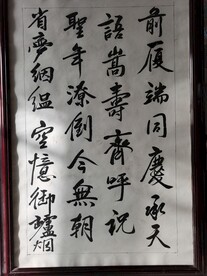 前履端同慶承天
語嵩壽齊呼祝
聖年潦倒今無朝
省夢絪縕空憶御爐烟